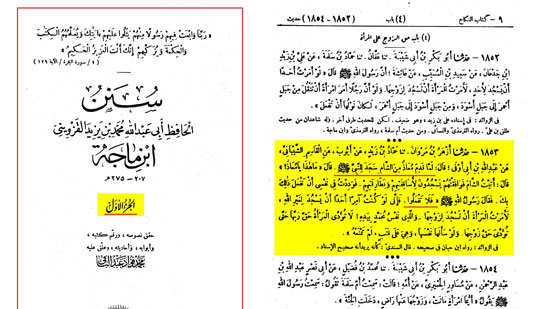 « رَبَّنَا وَابْعَثْ فِيهِمْ رَسُولًا مِنْهُمْ يَتْلُوا عَلَيْهِمْ آيَاتِكَ وَيُعَلِّمُهُمُ الْكِتَابَ
وَالْحِكْمَةَ وَيُزَكِّيهِمْ إِنَّكَ أَنْتَ الْعَزِيزُ الْحَكِيمُ »
سُنَنُ
الحافظ أبي عبد الله محمد بن يزيد القزويني
ابن ماجة
٢٠٧ - ٢٧٥ هـ
الجزء الأول
حقق نصوصه ، ورقم كتبه ،
وأبوابه ، وأحاديثه ، وعلق عليه
محمد فؤاد عبد الباقي
٩ - كتاب النكاح (٤) باب (١٨٥٢ - ١٨٥٤) حديث
(٤) باب حق الزوج على المرأة
١٨٥٢ - حدثنا أَبُو بَكْرِ بْنُ أَبِي شَيْبَةَ . ثنا عَفَّانُ . ثنا حَمَّادُ بْنُ سَلَمَةَ ، عَنْ عَلِيِّ بْنِ زَيْدِ
ابْنِ جُدْعَانَ ، عَنْ سَعِيدِ بْنِ الْمُسَيَّبِ ، عَنْ عَائِشَةَ ؛ أَنَّ رَسُولَ اللهِ ﷺ قَالَ « لَوْ أَمَرْتُ أَحَدًا
أَنْ يَسْجُدَ لِأَحَدٍ ، لَأَمَرْتُ الْمَرْأَةَ أَنْ تَسْجُدَ لِزَوْجِهَا . وَلَوْ أَنَّ رَجُلًا أَمَرَ امْرَأَةً أَنْ تَنْقُلَ مِنْ جَبَلٍ
أَحْمَرَ إِلَى جَبَلٍ أَسْوَدَ ، وَمِنْ جَبَلٍ أَسْوَدَ إِلَى جَبَلٍ أَحْمَرَ ، لَكَانَ نَوْلُهَا أَنْ تَفْعَلَ » .
في الزوائد : في إسناده علي بن زيد ، وهو ضعيف . لكن للحديث طرق أخر . وله شاهدان من حديث
طلق بن علي . رواه الترمذي والنسائي . ومن حديث أم سلمة ، رواه الترمذي وابن ماجة .
١٨٥٣ - حدثنا أَزْهَرُ بْنُ مَرْوَانَ . ثنا حَمَّادُ بْنُ زَيْدٍ ، عَنْ أَيُّوبَ ، عَنِ الْقَاسِمِ الشَّيْبَانِيِّ ،
عَنْ عَبْدِ اللهِ بْنِ أَبِي أَوْفَى ؛ قَالَ : لَمَّا قَدِمَ مُعَاذٌ مِنَ الشَّامِ سَجَدَ لِلنَّبِيِّ ﷺ . قَالَ « مَا هٰذَا يَا مُعَاذُ ؟ »
قَالَ : أَتَيْتُ الشَّامَ فَوَافَقْتُهُمْ يَسْجُدُونَ لِأَسَاقِفَتِهِمْ وَبَطَارِقَتِهِمْ . فَوَدِدْتُ فِي نَفْسِي أَنْ نَفْعَلَ ذٰلِكَ
بِكَ . فَقَالَ رَسُولُ اللهِ ﷺ « فَلَا تَفْعَلُوا . فَإِنِّي لَوْ كُنْتُ آمِرًا أَحَدًا أَنْ يَسْجُدَ لِغَيْرِ اللهِ ،
لَأَمَرْتُ الْمَرْأَةَ أَنْ تَسْجُدَ لِزَوْجِهَا . وَالَّذِي نَفْسُ مُحَمَّدٍ بِيَدِهِ ! لَا تُؤَدِّي الْمَرْأَةُ حَقَّ رَبِّهَا حَتَّى
تُؤَدِّيَ حَقَّ زَوْجِهَا . وَلَوْ سَأَلَهَا نَفْسَهَا ، وَهِيَ عَلَى قَتَبٍ ، لَمْ تَمْنَعْهُ » .
في الزوائد : رواه ابن حبان في صحيحه . قال السندي : كأنه يريد أنه صحيح الإسناد .
١٨٥٤ - حدثنا أَبُو بَكْرِ بْنُ أَبِي شَيْبَةَ . ثنا مُحَمَّدُ بْنُ فُضَيْلٍ ، عَنْ أَبِي نَصْرٍ عَبْدِ اللهِ بْنِ
عَبْدِ الرَّحْمٰنِ ، عَنْ مُسَاوِرٍ الْحِمْيَرِيِّ ، عَنْ أُمِّهِ ؛ قَالَتْ : سَمِعْتُ أُمَّ سَلَمَةَ تَقُولُ : سَمِعْتُ رَسُولَ اللهِ ﷺ
يَقُولُ « أَيُّمَا امْرَأَةٍ مَاتَتْ ، وَزَوْجُهَا عَنْهَا رَاضٍ ، دَخَلَتِ الْجَنَّةَ » .